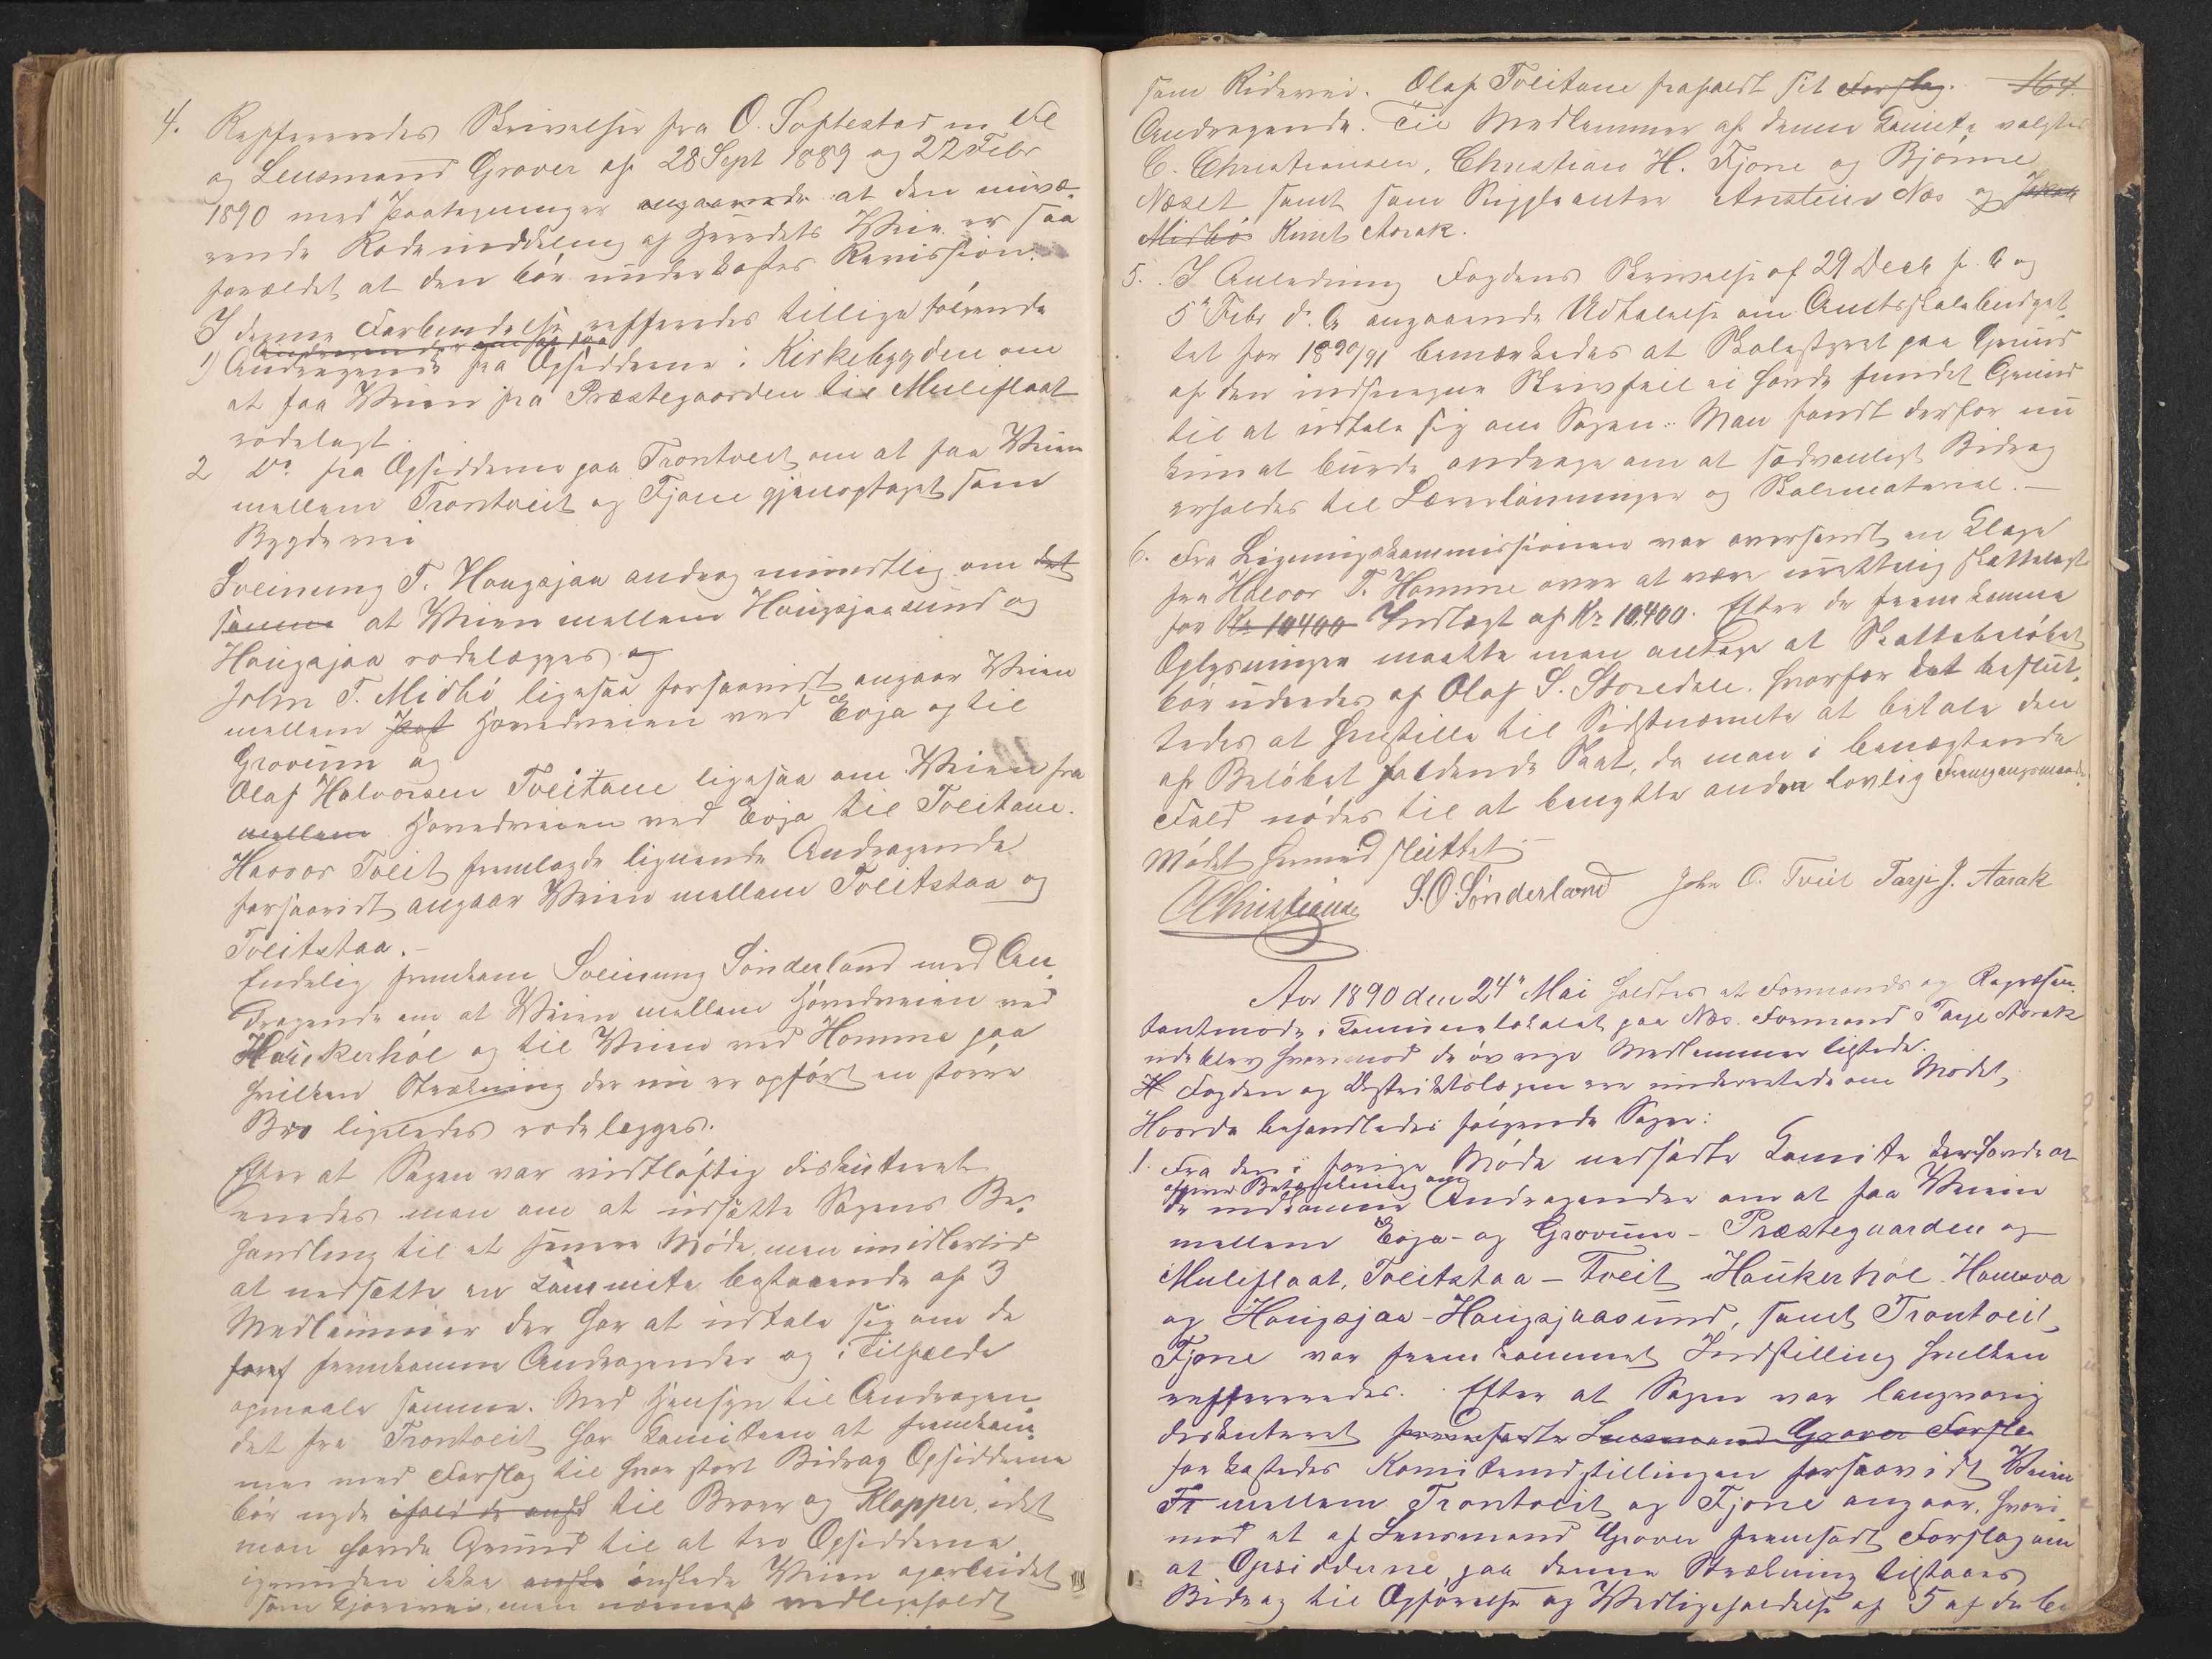 4. Reffereredes Skrivelser fra O. Søftestad m. Fl
og Lensmand Grover af 28 Sept 1889 og 22 Febr
1890 med Paategninger angaaende at den nuvæ-
rende Rodeinddeling af Herredets Veie er saa
forældet at den bør underkastes Revission.
I denne Forbindelse refferedes tillige følgende
1) Andragende fra Opsidderne i Kirkebygden om
at faa Veien fra Præstegaarden til Muliflaat
rodelagt.
2 Do fra Opsidderne paa Trontveit om at faa Veien
mellem Trontveit og Fjone gjenoptaget som
Bygdevei
Sveinung T. Haugsjaa androg mundtlig om det
samme at Veien mellem Haugsjaasund og
Haugsjaa rodelægges og
John T. Midbø ligesaa forsaavidt angaar Veien
mellem Hovedveien ved Eoja og til
Grovum og
Olaf Halvorsen Tveitane ligesaa om Veien fra
mellem Hovedveien ved Eoja til Tveitane.
Havor Tveit fremlagde lignende Andragende
forsaavidt angaar Veien mellem Tveitstaa og
Tveitstaa.-
Endelig fremkom Sveinung Sønderland med An-
dragende om at Veien mellem Hovedveien ved
Haukerhøl og til Veien ved Homme paa
hvilken Strækning der nu er opført en større
Bro ligeledes rodelægges.
Efter at Sagen var vidtløftig diskuteret
enedes man om at udsætte Sagens Be-
handling til et senere Møde, men imidlertid
at nedsætte en Kommite bestaaende af 3
Medlemmer der har at udtale sig om de
foref fremkomne Andragender og i Tilfælde
opmaale samme. Med Hensyn til Andragen-
det fra Trontveit har Komiteen at fremkom-
me med Forslag til hvor stort Bidrag Opsidderne
bør nyde til Broer og Klopper, idet
man havde Grund til at tro Opsidderne
igrunden ikke ønskede Veien oparbeidet
som Kjørevei, men nærmest vedligeholdt
som Ridevei. Olaf Tveitane frafaldt sit Forslag. 164.
Andragende. Til Medlemmer af denne Komite valgtes
C. Christiansen, Christian H. Fjone og Bjønne
Næset samt som Suppleanter Anstein Næs og Jakob
Midbø Knut Aasak.
5. I Anledning Fogdens Skrivelse af 29 Decb f. A og
5" Febr d. A angaaende Udtalelse om Amtsskolebudget-
tet for 1890/91 bemærkedes at Skolestyret paa Grund
af den indsnegne Skrivfeil ei havde fundet Grund
til at udtale sig om Sagen. Man fandt derfor nu
kun at burde andrage om at sedvanligt Bidrag
erholdes til Lærerlønninger og Skolemateriel.-
6. Fra Ligningskommissionen var oversendt en Klage
fra Halvor T. Homme over at være urettelig skattelagt
for Kr 10400 Indtægt af Kr 10.400. Efter de fremkomne
Oplysninger maatte man antage at Skattebeløbet
bør udredes af Olaf S. Storedale, hvorfor det beslut-
tedes at henstille til Sidstnævnte at betale den
af Beløbet faldende Skat, da man i benægtende
Fald nødes til at benytte anden lovlig Fremgangsmaade.
Mødet hermed sluttet.-
CChristiansen S.O.Sønderland John O. Tveit Tarje J. Aasak
Aar 1890 den 24" Mai holdtes et Formands og Repræsen-
tantmøde i Kommunelokalet paa Næs. Formand Tarje Aasak
udeblev hvorimod de øvrige Medlemmer tilstede.
H Fogden og Distriktslægen var underrettede om Mødet,
Hvorda behandledes følgende Sager:
1. Fra den i forrige Møde nedsatte Komite der havde at
afgive Betænkning om
de indkomne Andragender om at faa Veiene
mellem Eoja- og Grovum - Præstegaarden og
Muliflaat, Tveitstaa - Tveit Haukerhøl Homsva
og Haugsjaa-Haugsjaasund, samt Trontveit
Fjone var fremkommet Indstilling hvilken
reffereredes. Efter at Sagen var langvarig
diskuteret fremsatte Lensmand Grover Forsla
forkastedes Komiteindstillingen forsaavidt Veien
Fr mellem Trontveit og Fjone angaar, hvori-
mod et af Lensmand Grover fremsat Forslag om
at Opsidderne paa denne Strækning tilstaaes
Bidrag til Opførelse og Vedligeholdelse af 5 af de be